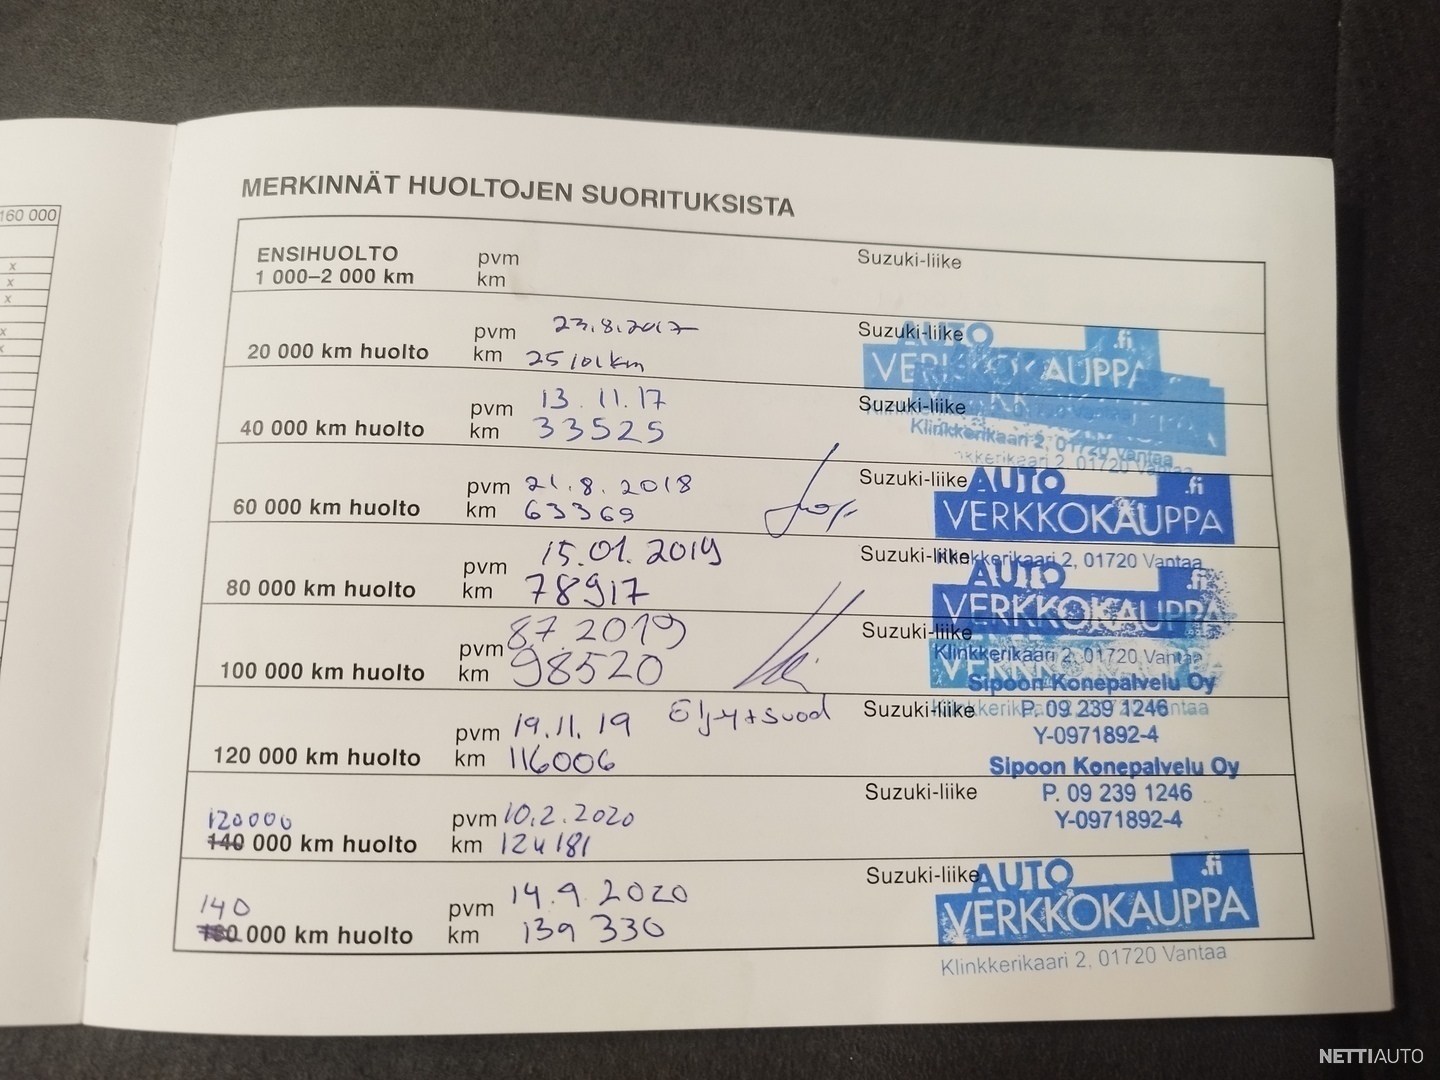 160 000
x
x
x
x
x
MERKINNÄT HUOLTOJEN SUORITUKSISTA
ENSIHUOLTO pvm Suzuki-liike
1 000–2 000 km km
pvm 23.8.2017 Suzuki-liike AUTO .fi
20 000 km huolto km 25101km VERKKOKAUPPA
pvm 13.11.17 Suzuki-liike
40 000 km huolto km 33525 Klinkkerikaari 2, 01720 Vantaa
kkerikaari 2, 01720 Vantaa
pvm 21.8.2018 Suzuki-liike AUTO .fi
60 000 km huolto km 63369 VERKKOKAUPPA
pvm 15.01.2019 Suzuki-liike Klinkkerikaari 2, 01720 Vantaa
AUTO .fi
80 000 km huolto km 78917 VERKKOKAUPPA
pvm 8.7.2019 Suzuki-liike
Klinkkerikaari 2, 01720 Vantaa
100 000 km huolto km 98520 Sipoon Konepalvelu Oy
pvm 19.11.19 Suzuki-liike P. 09 239 1246
Y-0971892-4
120 000 km huolto km 116006 Sipoon Konepalvelu Oy
120000 pvm 10.2.2020 Suzuki-liike P. 09 239 1246
140 000 km huolto km 124181 Y-0971892-4
140 pvm 14.9.2020 Suzuki-liike AUTO .fi
000 km huolto km 139 330 VERKKOKAUPPA
Klinkkerikaari 2, 01720 Vantaa
NETTIAUTO